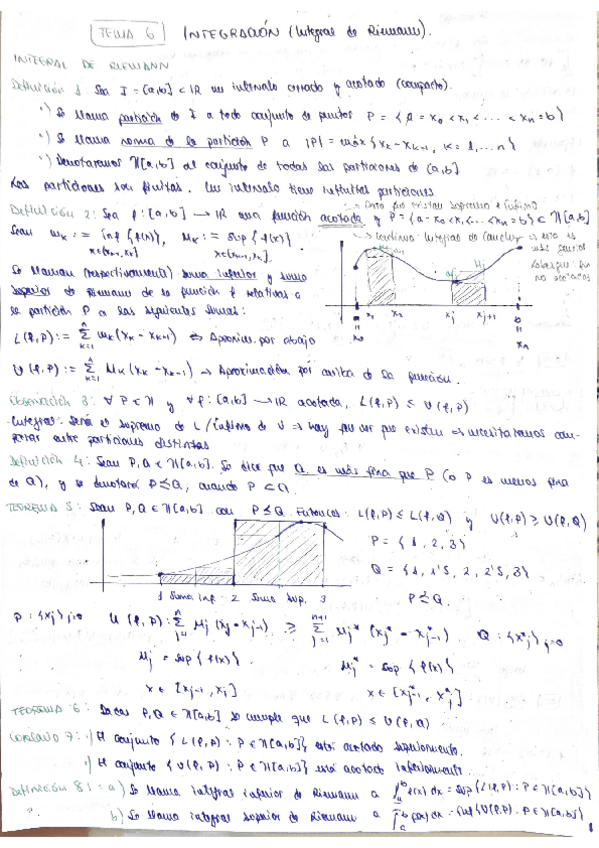 TEMA 6 INTEGRACIÓN (Integral de Riemann).
INTEGRAL DE RIEMANN
Definición 1: Sea I = [a,b] ⊂ IR un intervalo cerrado y acotado (compacto).
·) Se llama partición de I a todo conjunto de puntos P = {a = x₀ < x₁ < ... < xₙ = b}
·) Se llama norma de la partición P a |P| = máx {xₖ - xₖ₋₁, k = 1, ... n}
·) Denotaremos π[a,b] al conjunto de todas las particiones de [a,b]
Las particiones son finitas. Un intervalo tiene infinitas particiones.
Definición 2: Sea f: [a,b] → IR una función acotada y P = {a = x₀ < x₁ < ... < xₙ = b} ∈ π[a,b]
Sean mₖ := inf {f(x)}, Mₖ := sup {f(x)}
x∈[xₖ₋₁, xₖ] x∈[xₖ₋₁, xₖ]
Se llaman (respectivamente) suma inferior y suma
superior de Riemann de la función f relativas a
la partición P a las siguientes sumas:
x₁ x₂ xⱼ xⱼ₊₁
x₀ xₙ
L(f,P) := Σₖ₌₁ⁿ mₖ (xₖ - xₖ₋₁) → Aproxim. por abajo
U(f,P) := Σₖ₌₁ⁿ Mₖ (xₖ - xₖ₋₁) → Aproximación por arriba de la función.
Observación 3: ∀ P ∈ π y ∀ f: [a,b] → IR acotada, L(f,P) ≤ U(f,P)
Integral: Será el supremo de L / ínfimo de U → hay que ver que existen → necesitaremos com-
parar entre particiones distintas
Definición 4: Sean P, Q ∈ π[a,b]. Se dice que Q es más fina que P (o P es menos fina
de Q), y se denotará P ≤ Q, cuando P ⊂ Q.
TEOREMA 5: Sean P, Q ∈ π[a,b] con P ≤ Q. Entonces: L(f,P) ≤ L(f,Q) y U(f,P) ≥ U(f,Q)
P = {1, 2, 3}
Q = {1, 1'5, 2, 2'5, 3}
P ≤ Q
1 Suma inf. 2 Suma sup. 3
P: {xⱼ}ⱼ₌₀ U(f,P): Σⱼ₌₁ⁿ Mⱼ (xⱼ - xⱼ₋₁) ≥ Σⱼ₌₁ⁿ⁺¹ Mⱼ* (xⱼ* - xⱼ₋₁*) Q: {xⱼ*}ⱼ₌₀
Mⱼ = sup {f(x)} Mⱼ* = sup {f(x)}
x ∈ [xⱼ₋₁, xⱼ] x ∈ [xⱼ₋₁*, xⱼ*]
TEOREMA 6: Sean P, Q ∈ π[a,b] se cumple que L(f,P) ≤ U(f,Q)
Corolario 7: ·) El conjunto {L(f,P): P ∈ π[a,b]} está acotado superiormente.
·) El conjunto {U(f,P): P ∈ π[a,b]} está acotado inferiormente.
Definición 8: a) Se llama integral inferior de Riemann a ∫ₐᵇ f(x) dx = sup {L(f,P): P ∈ π[a,b]}
b) Se llama integral superior de Riemann a ∫ₐᵇ f(x) dx = inf {U(f,P): P ∈ π[a,b]}